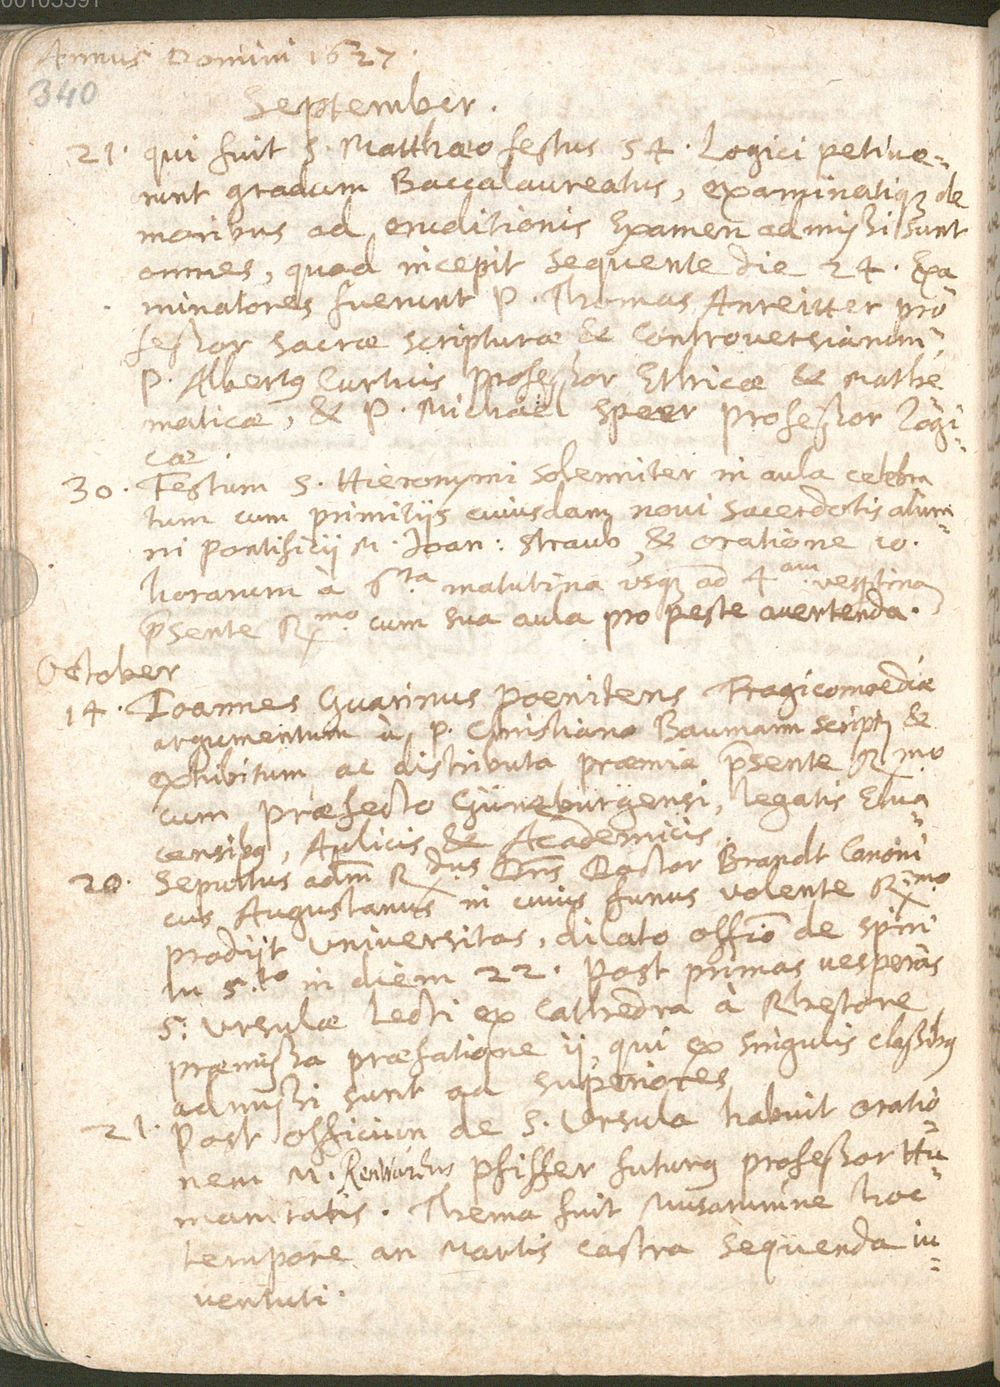 00103391
Annus Domini 1627.
340
September.
21. qui fuit S. Matthæo festus 54. Logici petiue=
runt gradum Baccalaureatus, examinatiq; de
moribus ad eruditionis Examen admissi sunt
omnes, quod incepit sequente die 24. Exa
minatores fuerunt P. Thomas Anreitter pro
fessor sacræ scripturæ & Controuersiarum,
P. Albertus Curtius professor Ethicæ & Mathe
maticæ, & P. Michaël Speer professor Logi=
cæ
30. Festum S. Hieronymi solemniter in aula celebra
tum cum primitijs cuiusdam noui sacerdotis alum=
ni Pontificij M. Ioan: Straub, & oratione 10.
horarum à 6ta matutina vsq; ad 4am vesptina
p̄sente Rmo cum sua aula pro peste auertenda.
October
14. Ioannes Guarinus poenitens Tragicomoediæ
argumentum à P. Christiano Baumann script; &
exhibitum ac distributa præmia p̄sente Rmo
cum Præfecto Günsburgensi, legatis Elua=
censibq, Aulicis & Academicis.
20. Sepultus adm Rdus Dns Doctor Brandt Canoni
cus Augustanus in cuius funus volente Rmo
prodijt Vniuersitas, dilato offio de spiri
tu S.to in diem 22. Post primas vesperas
S. Vrsulæ Lecti ex Cathedra à Rhetore
præmissa præfatione ij, qui ex singulis classibq
admissi sunt ad superiores
21. Post officium de S. Vrsula habuit oratio=
nem M. Renwardus Pfiffer futurq professor Hu=
manitatis. Thema fuit Musarumne hoc
tempore an Martis castra sequenda iu=
uentuti.